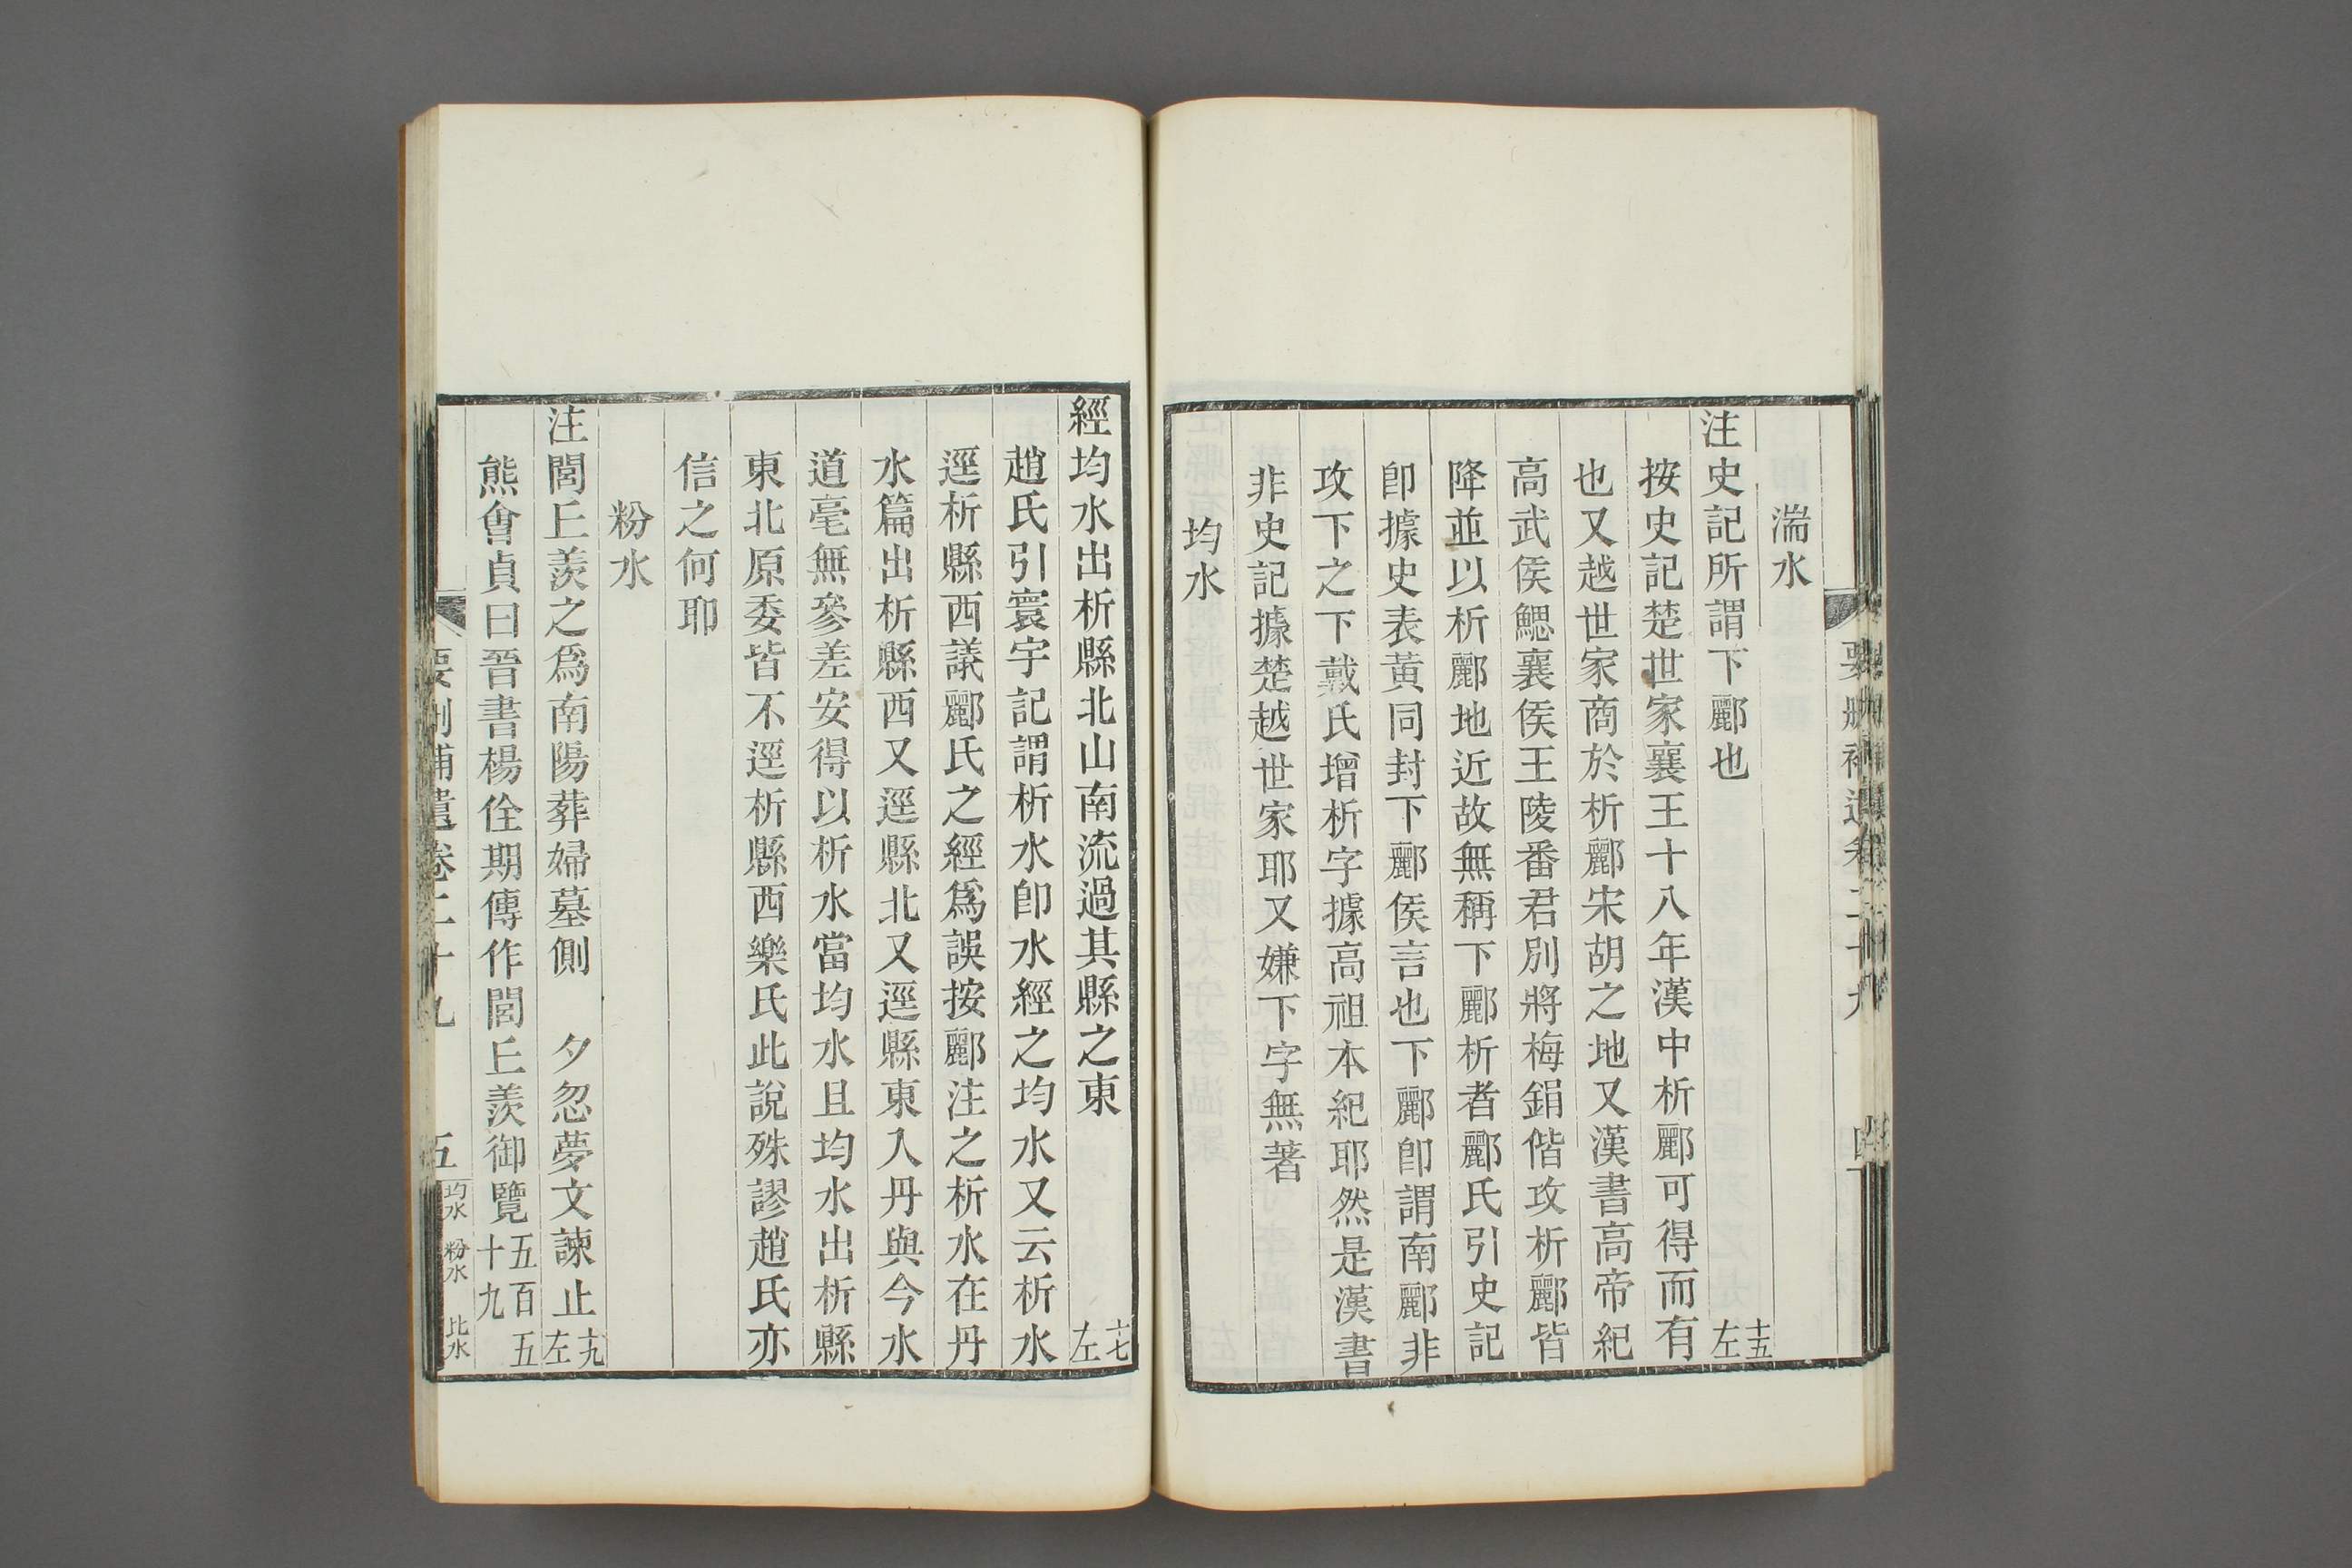 湍水
注史記所謂下酈也十五左
按史記楚世家襄王十八年漢中析酈可得而有
也又越世家商於析酈宋胡之地又漢書高帝紀
高武侯鰓襄侯王陵番君別將梅鋗偕攻析酈皆
降並以析酈地近故無稱下酈析者酈氏引史記
卽據史表黃同封下酈侯言也下酈卽謂南酈非
攻下之下戴氏增析字據高祖本紀耶然是漢書
非史記據楚越世家耶又嫌下字無著
均水
經均水出析縣北山南流過其縣之東十七左
趙氏引寰宇記謂析水卽水經之均水又云析水
逕析縣西議酈氏之經爲誤按酈注之析水在丹
水篇出析縣西又逕縣北又逕縣東入丹與今水
道毫無參差安得以析水當均水且均水出析縣
東北原委皆不逕析縣西樂氏此說殊謬趙氏亦
信之何耶
粉水
注閭丘羨之爲南陽葬婦墓側　夕忽夢文諫止十九左
熊會貞曰晉書楊佺期傳作閭丘羨御覽五百五十九
要刪補遺卷二十九　五　均水　粉水　比水